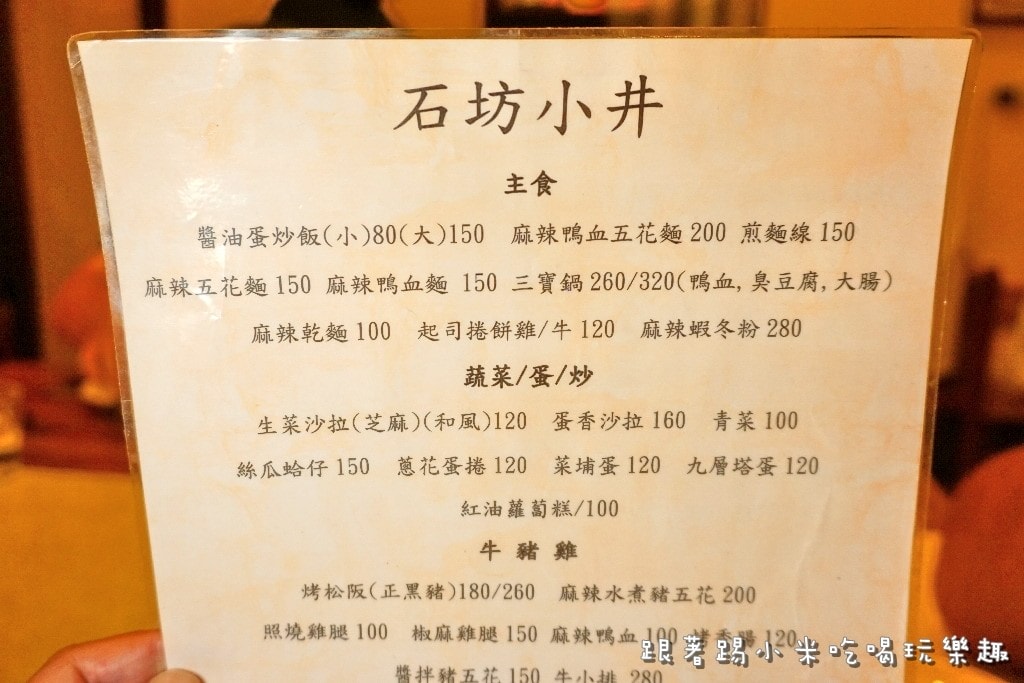 石坊小井
主食
醬油蛋炒飯(小)80(大)150 麻辣鴨血五花麵 200 煎麵線 150
麻辣五花麵 150 麻辣鴨血麵 150 三寶鍋 260/320(鴨血,臭豆腐,大腸)
麻辣乾麵 100 起司捲餅雞/牛 120 麻辣蝦冬粉 280
蔬菜/蛋/炒
生菜沙拉(芝麻)(和風)120 蛋香沙拉 160 青菜 100
絲瓜蛤仔 150 蔥花蛋捲 120 菜埔蛋 120 九層塔蛋 120
紅油蘿蔔糕/100
牛 豬 雞
烤松阪(正黑豬)180/260 麻辣水煮豬五花 200
照燒雞腿 100 椒麻雞腿 150 麻辣鴨血 100 烤香腸 120
醬拌豬五花 150 牛小排 280
跟著踢小米吃喝玩樂趣